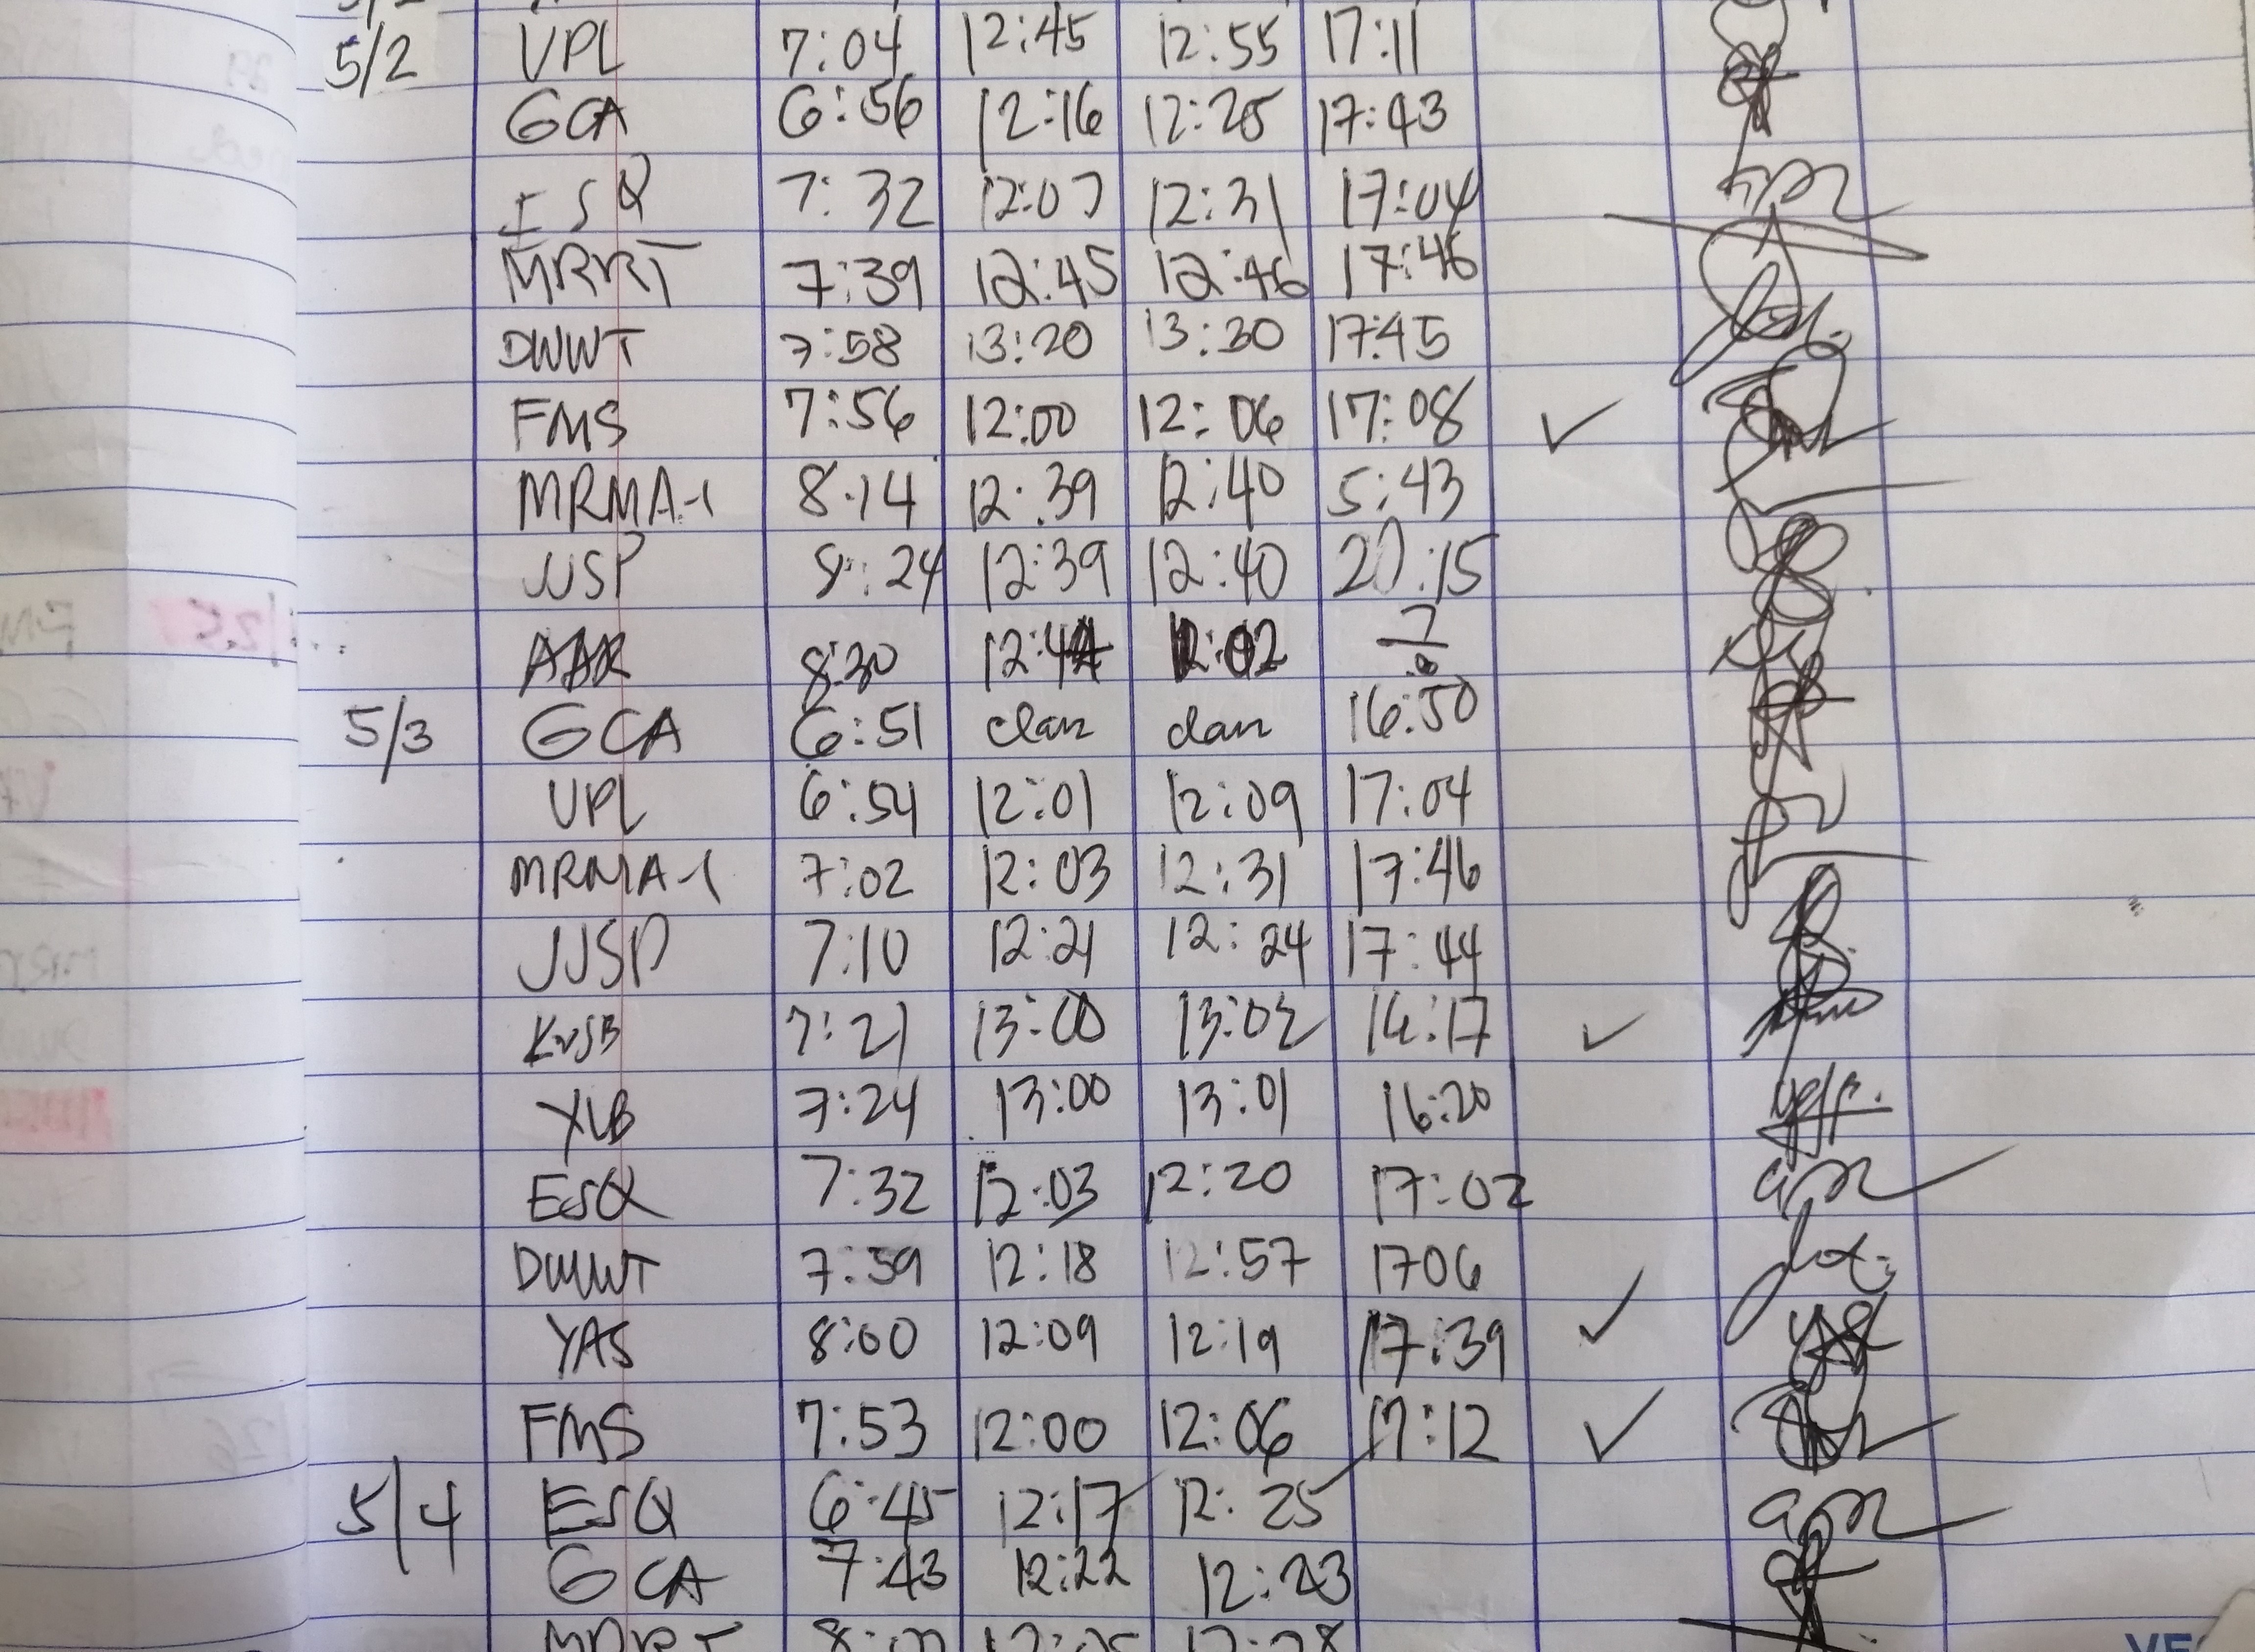 5/2 VPL 7:04 12:45 12:55 17:11
GCA 6:56 12:16 12:25 17:43
ESQ 7:32 12:07 12:31 17:04
MRRT 7:39 12:45 12:46 17:46
DWWT 7:58 13:20 13:30 17:45
FMS 7:56 12:00 12:06 17:08 ✓
MRMA-1 8:14 12:39 12:40 5:43
JJSP 8:24 12:39 12:40 20:15
8:30
5/3 GCA 6:51 16:50
VPL 6:54 12:01 12:09 17:04
MRMA-1 7:02 12:03 12:31 17:46
JJSP 7:10 12:21 12:24 17:44
7:21 13:00 13:02 16:17 ✓
YLB 7:24 13:00 13:01 16:20
ESQ 7:32 12:03 12:20 17:02
DWWT 7:59 12:18 12:57 1706
YAS 8:00 12:09 12:19 17:39 ✓
FMS 7:53 12:00 12:06 17:12 ✓
5/4 ESQ 6:45 12:17 12:25
GCA 7:43 12:22 12:23